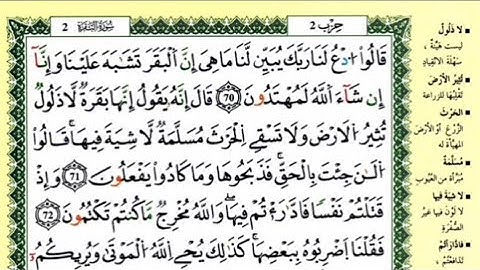 حِزْب 2
سُورَةُ البَقَرَةِ 2
قَالُوا۟ ٱدْعُ لَنَا رَبَّكَ يُبَيِّن لَّنَا مَا هِىَ إِنَّ ٱلْبَقَرَ تَشَٰبَهَ عَلَيْنَا وَإِنَّآ
إِن شَآءَ ٱللَّهُ لَمُهْتَدُونَ 70 قَالَ إِنَّهُۥ يَقُولُ إِنَّهَا بَقَرَةٌ لَّا ذَلُولٌ
تُثِيرُ ٱلْأَرْضَ وَلَا تَسْقِى ٱلْحَرْثَ مُسَلَّمَةٌ لَّا شِيَةَ فِيهَا قَالُوا۟
ٱلْـَٰٔنَ جِئْتَ بِٱلْحَقِّ فَذَبَحُوهَا وَمَا كَادُوا۟ يَفْعَلُونَ 71 وَإِذْ
قَتَلْتُمْ نَفْسًا فَٱدَّٰرَْٰٔتُمْ فِيهَا وَٱللَّهُ مُخْرِجٌ مَّا كُنتُمْ تَكْتُمُونَ 72
فَقُلْنَا ٱضْرِبُوهُ بِبَعْضِهَا كَذَٰلِكَ يُحْىِ ٱللَّهُ ٱلْمَوْتَىٰ وَيُرِيكُمْ
لا ذَلُولٌ
ليست هَيِّنةً،
سَهْلَةَ الانْقِيادِ
تُثِيرُ الأَرْضَ
تَقْلِبُهَا للزِّراعَةِ
الحَرْثَ
الزَّرْعَ أو الأَرْضَ
المُهَيَّأَةَ له
مُسَلَّمَةٌ
مُبَرَّأَةٌ مِنَ العُيُوبِ
لا شِيَةَ فيها
لا لَوْنَ فيها غير
الصُّفْرَةِ
فَادَّارَأْتُمْ
تَدَافَعْتُمْ،